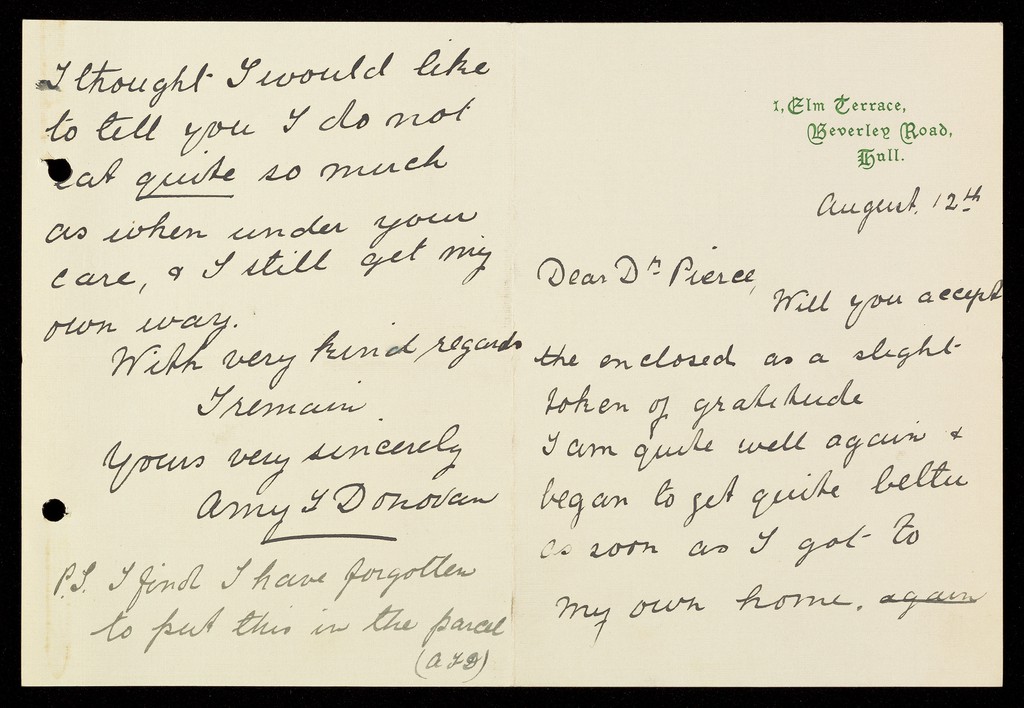 1, Elm Terrace,
Beverley Road,
Hull.
August. 12th
Dear Dr Pierce,
Will you accept
the enclosed as a slight
token of gratitude
I am quite well again &
began to get quite better
as soon as I got to
my own home. again
I thought I would like
to tell you I do not
eat quite so much
as when under your
care, & I still get my
own way.
With very kind regards
I remain
Yours very sincerely
Amy I Donovan
P.S. I find I have forgotten
to put this in the parcel
(AID)